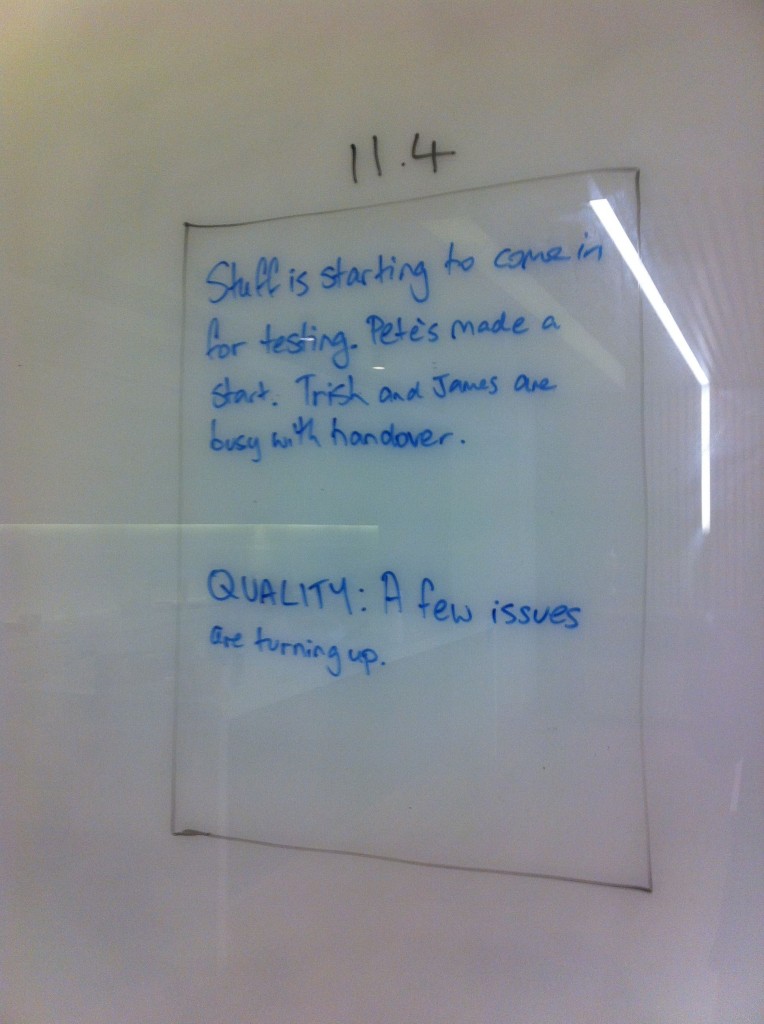 11.4
Stuff is starting to come in
for testing. Pete's made a
start. Trish and James are
busy with handover.
QUALITY: A few issues
are turning up.